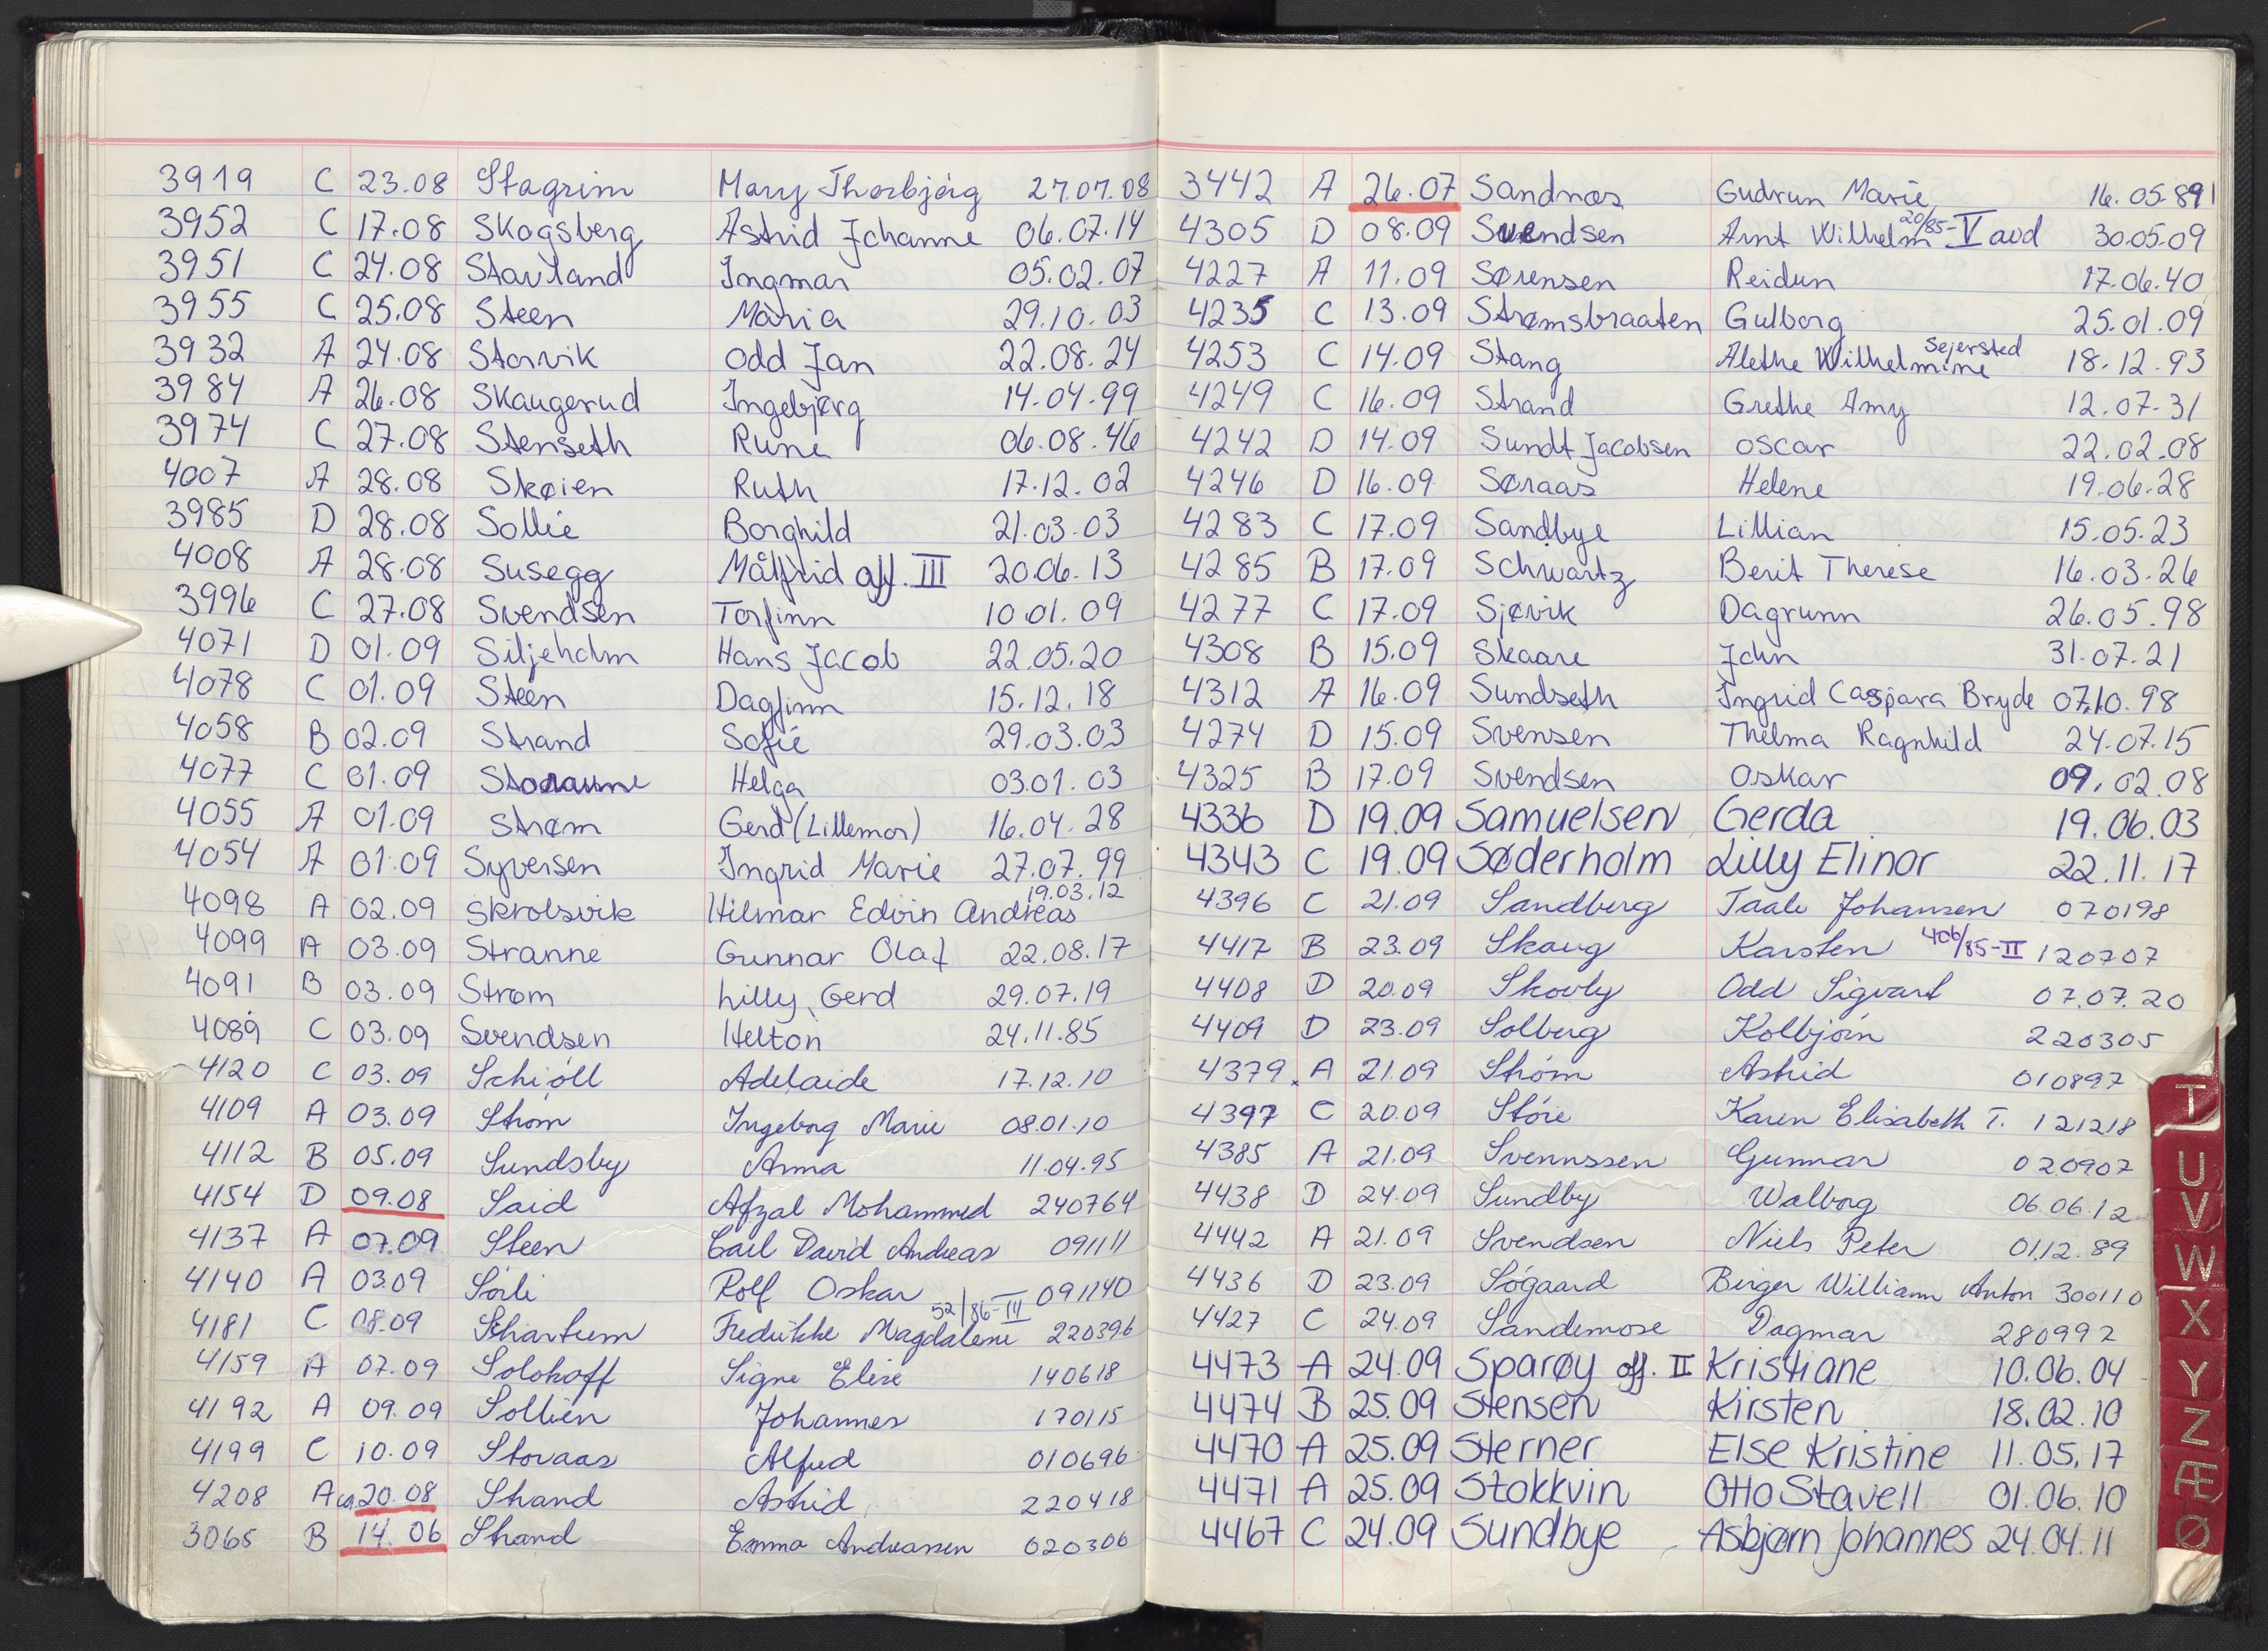 3919 C 23.08 Stagrim Mary Thorbjørg 27.07.08
3952 C 17.08 Skogsberg Astrid Johanne 06.07.14
3951 C 24.08 Stavland Ingmar 05.02.07
3955 C 25.08 Steen Maria 29.10.03
3932 A 24.08 Storvik Odd Jan 22.08.24
3984 A 26.08 Skaugerud Ingebjørg 14.04.99
3974 C 27.08 Stenseth Rune 06.08.46
4007 A 28.08 Skøien Ruth 17.12.02
3985 D 28.08 Sollie Borghild 21.03.03
4008 A 28.08 Susegg Målfrid off. III 20.06.13
3996 C 27.08 Svendsen Torfinn 10.01.09
4071 D 01.09 Siljeholm Hans Jacob 22.05.20
4078 C 01.09 Steen Dagfinn 15.12.18
4058 B 02.09 Strand Sofie 29.03.03
4077 C 01.09 Storaune Helga 03.01.03
4055 A 01.09 Strøm Gerd (Lillemor) 16.04.28
4054 A 01.09 Syversen Ingrid Marie 27.07.99
4098 A 02.09 Skrolsvik Hilmar Edvin Andreas 19.03.12
4099 A 03.09 Stranne Gunnar Olaf 22.08.17
4091 B 03.09 Strøm Lilly Gerd 29.07.19
4089 C 03.09 Svendsen Helton 24.11.85
4120 C 03.09 Schiöll Adelaide 17.12.10
4109 A 03.09 Strøm Ingeborg Marie 08.01.10
4112 B 05.09 Sundsby Anna 11.04.95
4154 D 09.08 Said Afzal Mohammed 240764
4137 A 07.09 Steen Carl David Andreas 091111
4140 A 03.09 Sörli Rolf Oskar 091140
4181 C 08.09 Schartum Fredrikke Magdalene 52/86-III 220396
4159 A 07.09 Solohoff Signe Elise 140618
4192 A 09.09 Sollien Johannes 170115
4199 C 10.09 Stovaas Alfred 010696
4208 A ca. 20.08 Strand Astrid 220418
3065 B 14.06 Strand Emma Andreassen 020306
3442 A 26.07 Sandnæs Gudrun Marie 16.05.891
4305 D 08.09 Svendsen Arnt Wilhelm 20/85-V avd 30.05.09
4227 A 11.09 Sørensen Reidun 17.06.40
4235 C 13.09 Strømsbraaten Gulborg 25.01.09
4253 C 14.09 Stang Alethe Wilhelmine Sejersted 18.12.93
4249 C 16.09 Strand Grethe Amy 12.07.31
4242 D 14.09 Sundt Jacobsen Oscar 22.02.08
4246 D 16.09 Søraas Helene 19.06.28
4283 C 17.09 Sandbye Lillian 15.05.23
4285 B 17.09 Schwartz Berit Therese 16.03.26
4277 C 17.09 Sjøvik Dagrunn 26.05.98
4308 B 15.09 Skaare John 31.07.21
4312 A 16.09 Sundseth Ingrid Caspara Bryde 07.10.98
4274 D 15.09 Svensen Thelma Ragnhild 24.07.15
4325 B 17.09 Svendsen Oskar 09.02.08
4336 D 19.09 Samuelsen Gerda 19.06.03
4343 C 19.09 Søderholm Lilly Elinor 22.11.17
4396 C 21.09 Sandberg Taale Johansen 070198
4417 B 23.09 Skaug Karsten 406/85-II 120707
4408 D 20.09 Skovly Odd Sigvart 07.07.20
4409 D 23.09 Solberg Kolbjörn 220305
4379 A 21.09 Strøm Astrid 010897
4397 C 20.09 Støre Karen Elisabeth T. 121218
4385 A 21.09 Svennssen Gunnar 020907
4438 D 24.09 Sundby Walborg 06.06.12
4442 A 21.09 Svendsen Niels Peter 01.12.89
4436 D 23.09 Søgaard Birger William Anton 300110
4427 C 24.09 Sandemose Dagmar 280992
4473 A 24.09 Sparøy off. II Kristiane 10.06.04
4474 B 25.09 Stensen Kirsten 18.02.10
4470 A 25.09 Sterner Else Kristine 11.05.17
4471 A 25.09 Stokkvin Otto Stavell 01.06.10
4467 C 24.09 Sundbye Asbjørn Johannes 24.04.11
T
U
V
W
X
Y
Z
Æ
Ø